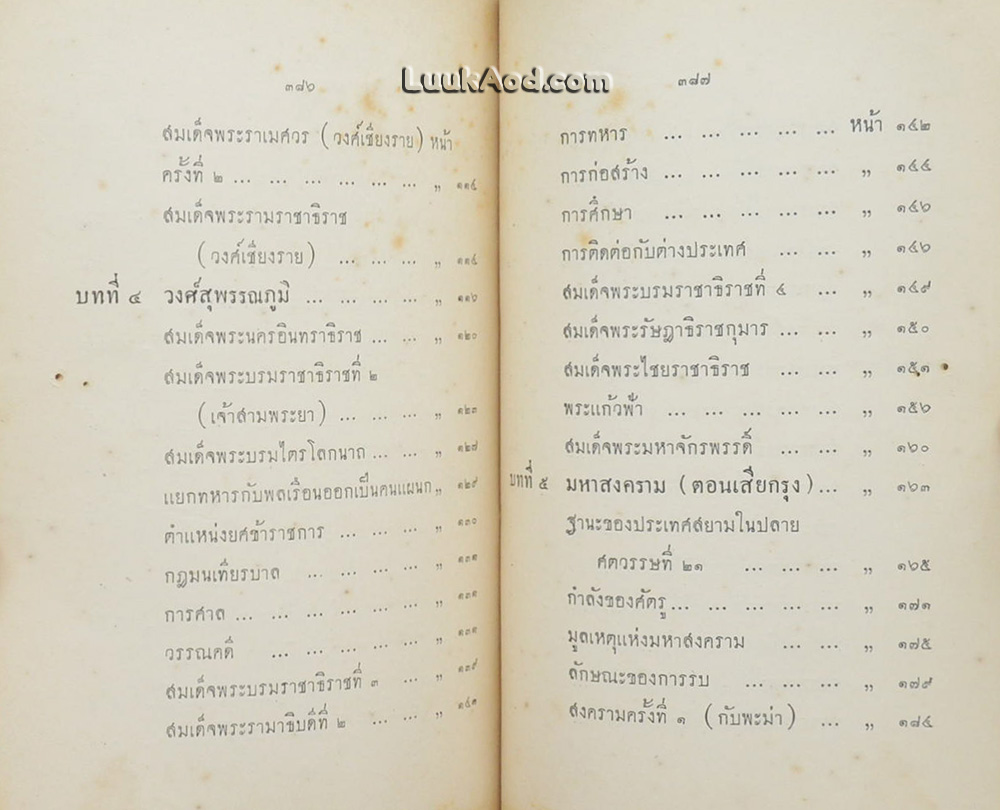 LuukAod.com
๓๘๖
สมเด็จพระราเมศวร (วงศ์เชียงราย) หน้า
ครั้งที่ ๒ ... ... ... ... ... ... „ ๑๑๔
สมเด็จพระรามราชาธิราช
(วงศ์เชียงราย) ... ... ... „ ๑๑๔
บทที่ ๔ วงศ์สุพรรณภูมิ ... ... ... ... „ ๑๑๖
สมเด็จพระนครอินทราธิราช ... ... „ ๑๒๐
สมเด็จพระบรมราชาธิราชที่ ๒
(เจ้าสามพระยา) ... ... ... „ ๑๒๓
สมเด็จพระบรมไตรโลกนาถ ... ... „ ๑๒๘
แยกทหารกับพลเรือนออกเป็นคนแผนก „ ๑๒๙
ตำแหน่งยศข้าราชการ ... ... ... „ ๑๓๐
กฎมนเทียรบาล ... ... ... ... „
การศาล ... ... ... ... ... „
วรรณคดี ... ... ... ... „
สมเด็จพระบรมราชาธิราชที่ ๓ ... „ ๑๓๙
สมเด็จพระรามาธิบดีที่ ๒ ... ... „ ๑๔๑
๓๘๗
การทหาร ... ... ... ... ... หน้า ๑๔๒
การก่อสร้าง ... ... ... ... ... „ ๑๔๔
การศึกษา ... ... ... ... ... „ ๑๔๖
การติดต่อกับต่างประเทศ ... ... „ ๑๔๖
สมเด็จพระบรมราชาธิราชที่ ๔ ... „ ๑๔๙
สมเด็จพระรัษฎาธิราชกุมาร ... ... „ ๑๕๐
สมเด็จพระไชยราชาธิราช ... ... „ ๑๕๑
พระแก้วฟ้า ... ... ... ... ... „ ๑๕๖
สมเด็จพระมหาจักรพรรดิ์ ... ... „ ๑๖๐
บทที่ ๕ มหาสงคราม (ตอนเสียกรุง) ... „ ๑๖๓
ฐานะของประเทศสยามในปลาย
ศตวรรษที่ ๒๑ ... ... ... „ ๑๖๕
กำลังของศัตรู ... ... ... ... ... „ ๑๗๑
มูลเหตุแห่งมหาสงคราม ... ... „ ๑๗๕
ลักษณะของการรบ ... ... ... „ ๑๗๙
สงครามครั้งที่ ๑ (กับพะม่า) ... „ ๑๘๔